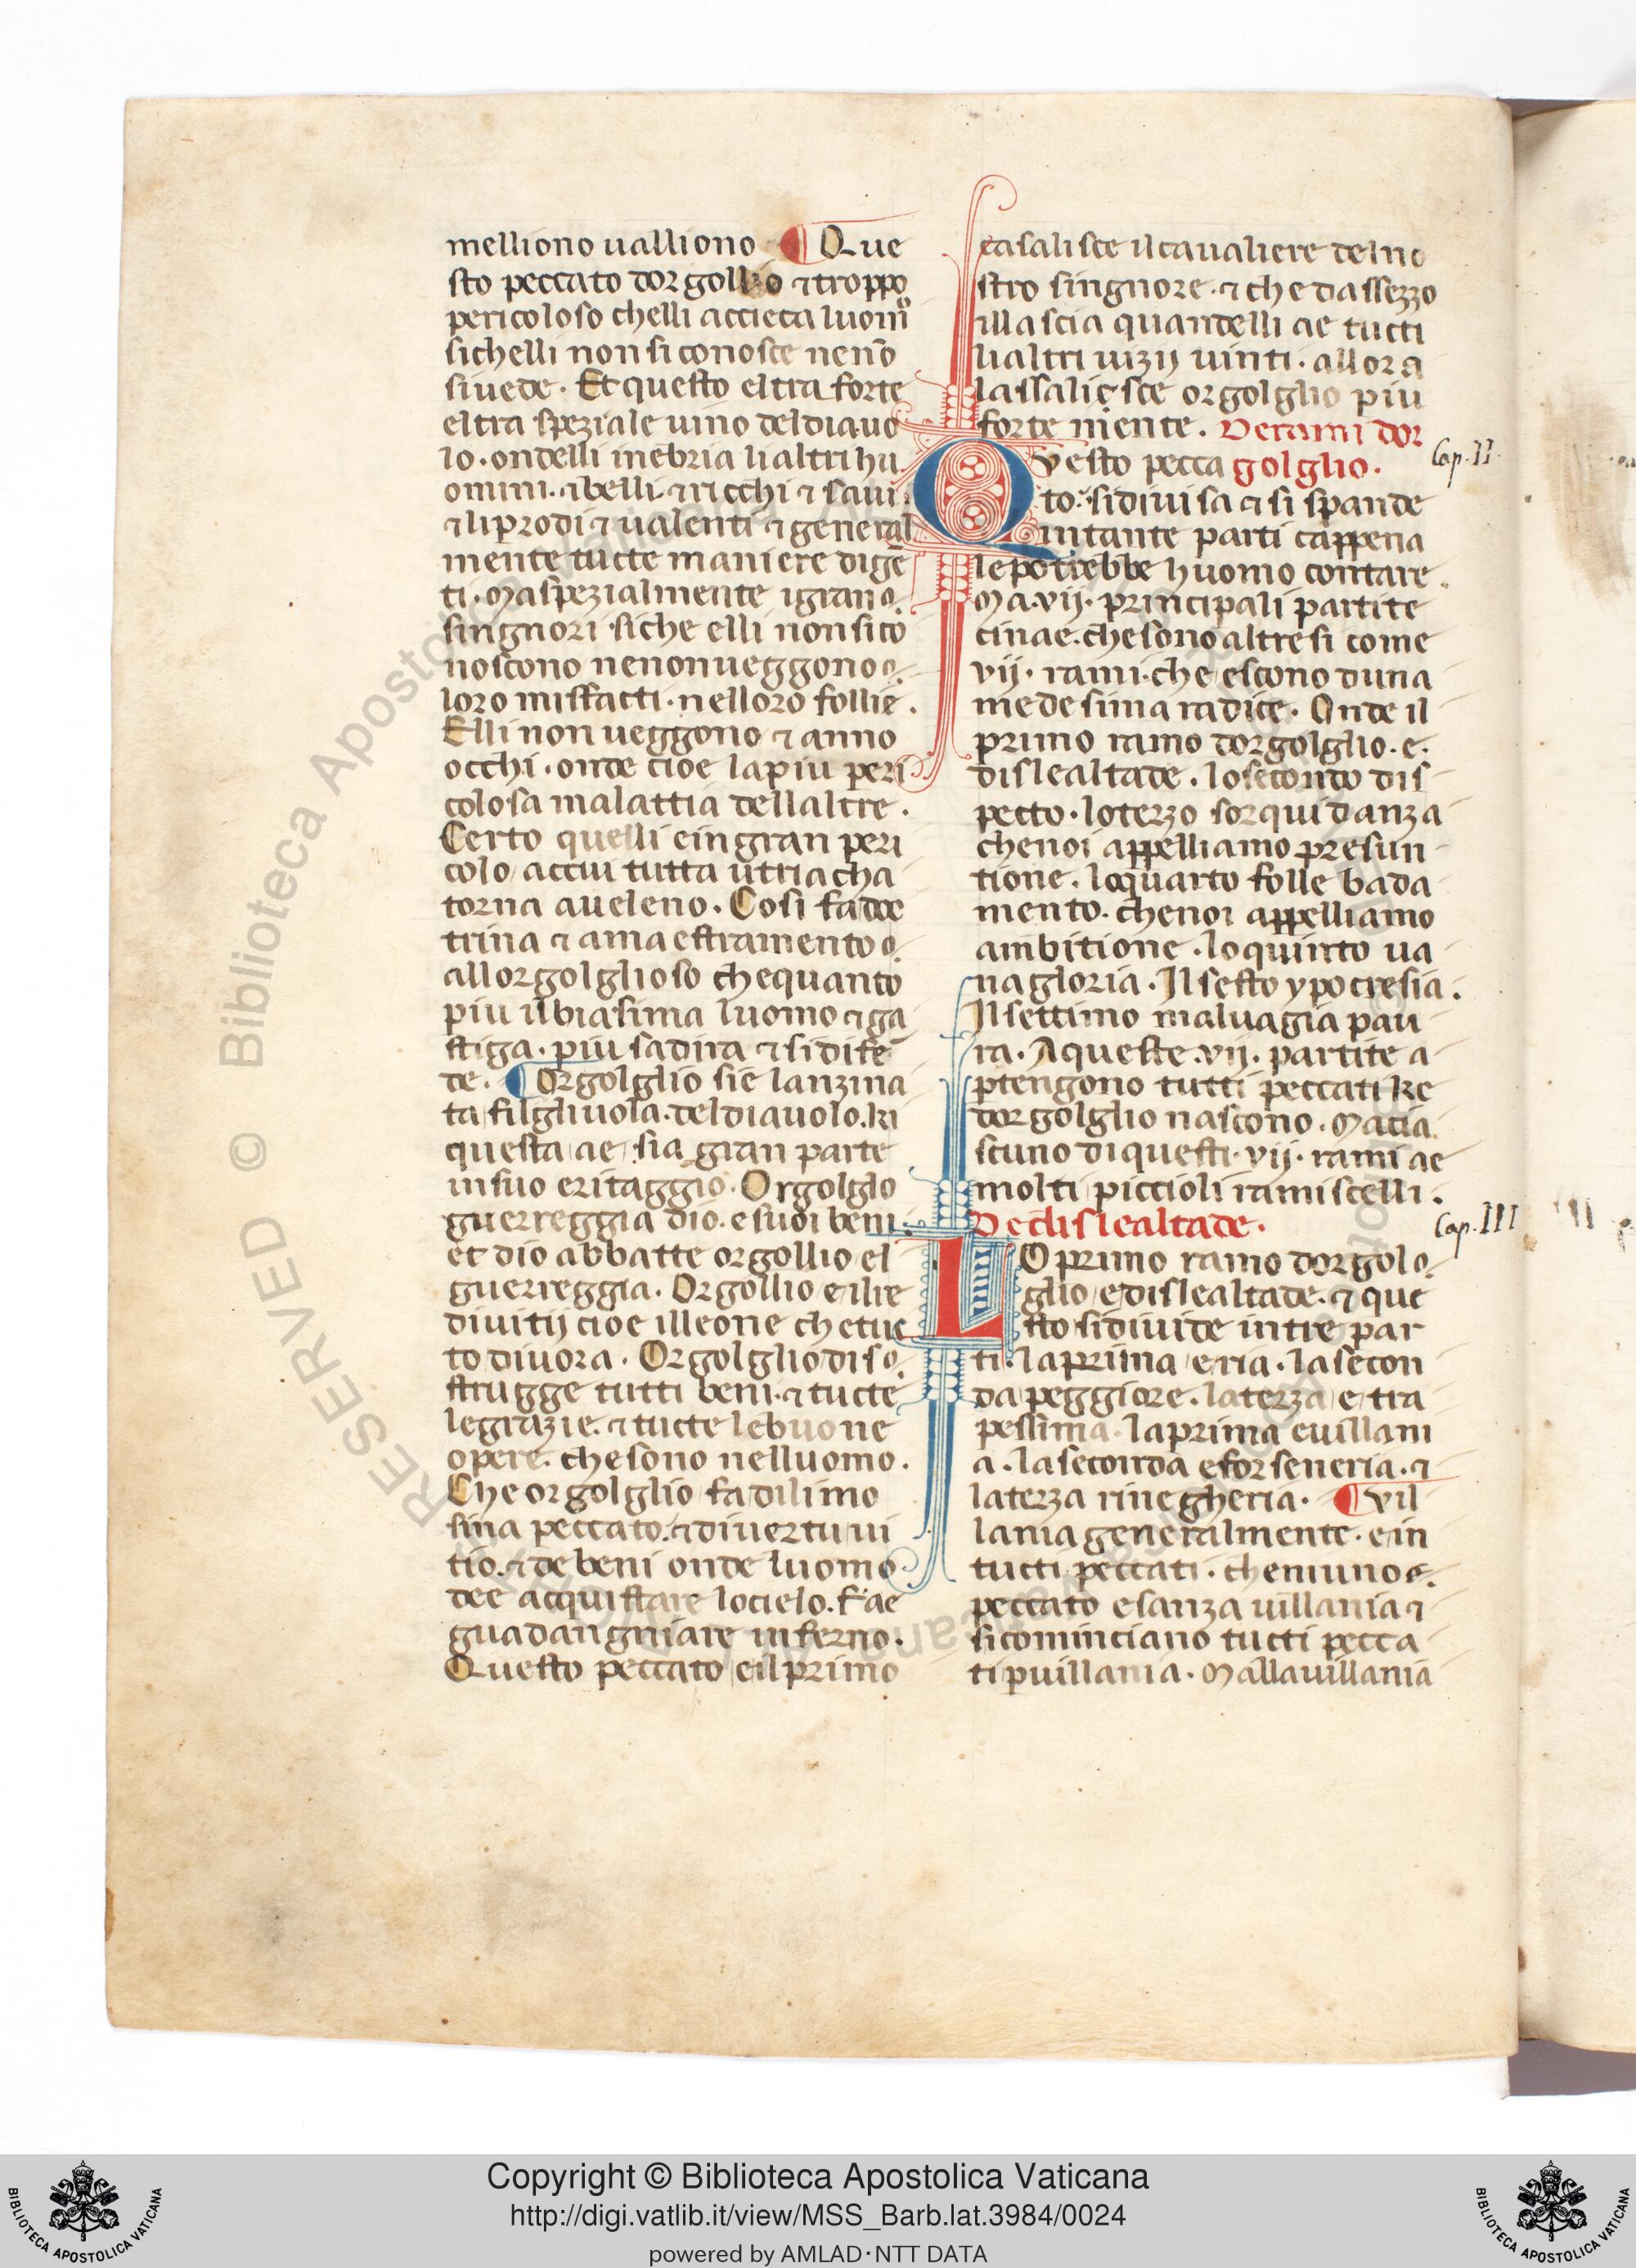 melliono ualliono ¶ Que
sto peccato dorgollio ⁊ troppo
pericoloso chelli accieca luom̊
sichelli non si conosce nenō
siuede. Et questo eltra forte
eltra speziale uino deldiauo
lo. ondelli inebria lialtri hu
omini. ibelli ⁊ ricchi ⁊ saui
⁊ liprodi ⁊ ualenti ⁊ general
mente tucte maniere digē
ti. Maspezialmente igran
singnori siche elli non sico
noscono nenonueggono
loro misfacti. nelloro follie.
Elli non ueggono ⁊ anno
occhi. onde cioe lapiu peri
colosa malattia dellaltre.
Certo quelli eingran peri
colo accui tutta utriacha
torna aueleno. Cosi fadoc
trina ⁊ amaestramento
allorgolglioso chequanto
piu ilbiasima luomo ⁊ ga
stiga. piu sadira ⁊ sidifē
de. ¶ Orgolglio sie lanzina
ta filghuola. deldiauolo. ki
questa ae sia gran parte
insuo eritaggio. Orgolglo
guerreggia dio. e suoi beni.
et dio abbatte orgollio el
guerreggia. Orgollio e ilre
diuitij cioe illeone chetuc
to diuora. Orgolglio dis
strugge tutti beni. ⁊ tucte
legrazie. ⁊ tucte lebuone
opere. chesono nelluomo.
Che orgolglio fa dilimo
sina peccato. ⁊ diuertu ui
tio. ⁊ debeni onde luomo
dee acquistare locielo. fae
guadangniare inferno.
Questo peccato eilprimo
casalisce ilcaualiere delno
stro singnore. ⁊ che dassezzo
illascia quandelli ae tucti
lialtri uizij uinti. allora
lassaliesce orgolglio piu
forte mente. De rami dor
golglio.
Cap. II.
Questo pecca
to. sidiuisa ⁊ si spande
intante parti cappena
lepotrebbe huomo contare.
Ma .vij. principali partite
cinae. chesono altresi come
vij. rami. che escono duna
medesima radice. Onde il
primo ramo dorgolglio. e.
dislealtade. losecondo dis
pecto. loterzo sorquidanza
chenoi appelliamo presun
tione. loquarto folle bada
mento. chenoi appelliamo
ambitione. loquinto ua
nagloria. Il sesto ypocresia.
Il settimo maluagia pau
ra. Aqueste .vij. partite a
ptengono tutti peccati ke
dorgolglio nascono. Macia
scuno diquesti. vij. rami ae
molti piccioli ramiscelli.
De dislealtade.
Cap. III
LO primo ramo dorgol
glio e dislealtade. ⁊ que
sto sidiuide intre par
ti. laprima e ria. lasecon
da peggiore. laterza e tra
pessima. laprima euillani
a. laseconda eforseneria. ⁊
laterza rinegheria. ¶ Vil
lania generalmente. ein
tucti peccati. cheniuno
peccato esanza uillania ⁊
sicominciano tucti pecca
ti puillania. Mallauillania
© Biblioteca Apostolica Vaticana
Copyright © Biblioteca Apostolica Vaticana
http://digi.vatlib.it/view/MSS_Barb.lat.3984/0024
powered by AMLAD·NTT DATA
BIBLIOTECA APOSTOLICA VATICANA
BIBLIOTECA APOSTOLICA VATICANA